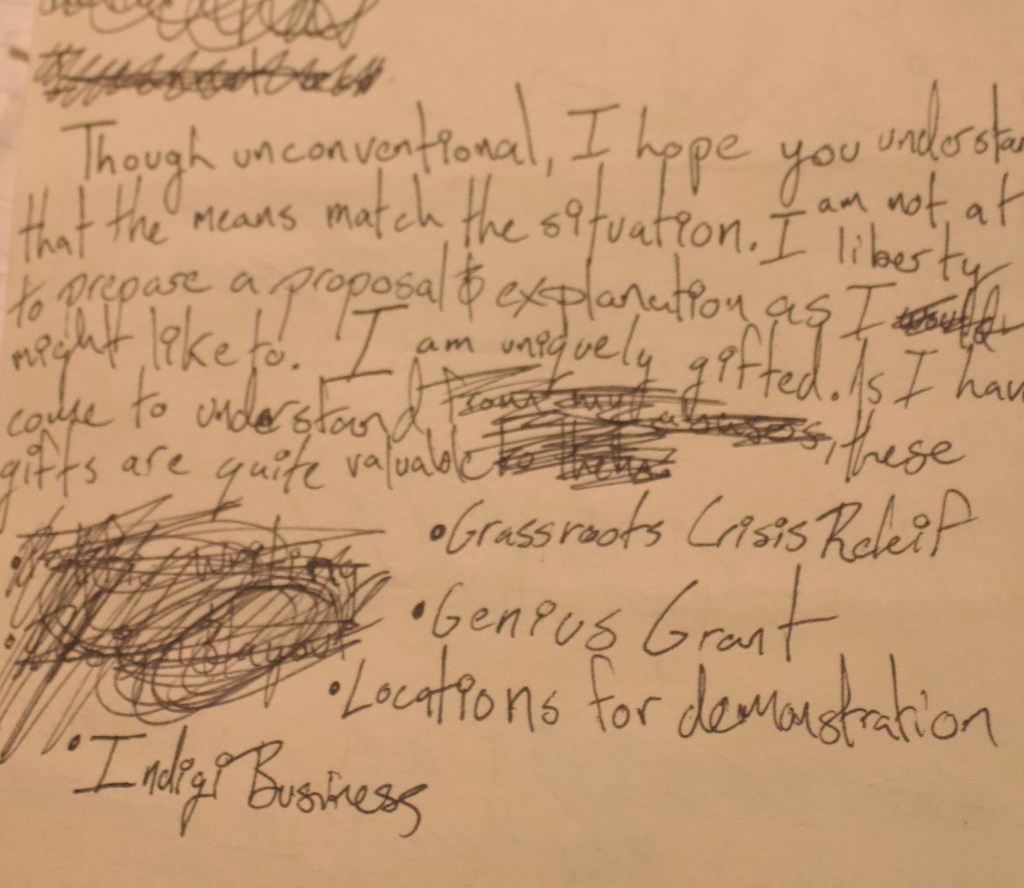 Though unconventional, I hope you understan
that the means match the situation. I am not at liberty
to prepare a proposal & explanation as I
might like to. I am uniquely gifted. As I hav
come to understand, these
gifts are quite valuable
• Grassroots Crisis Releif
• Genius Grant
• Locations for demonstration
• Indigi Business